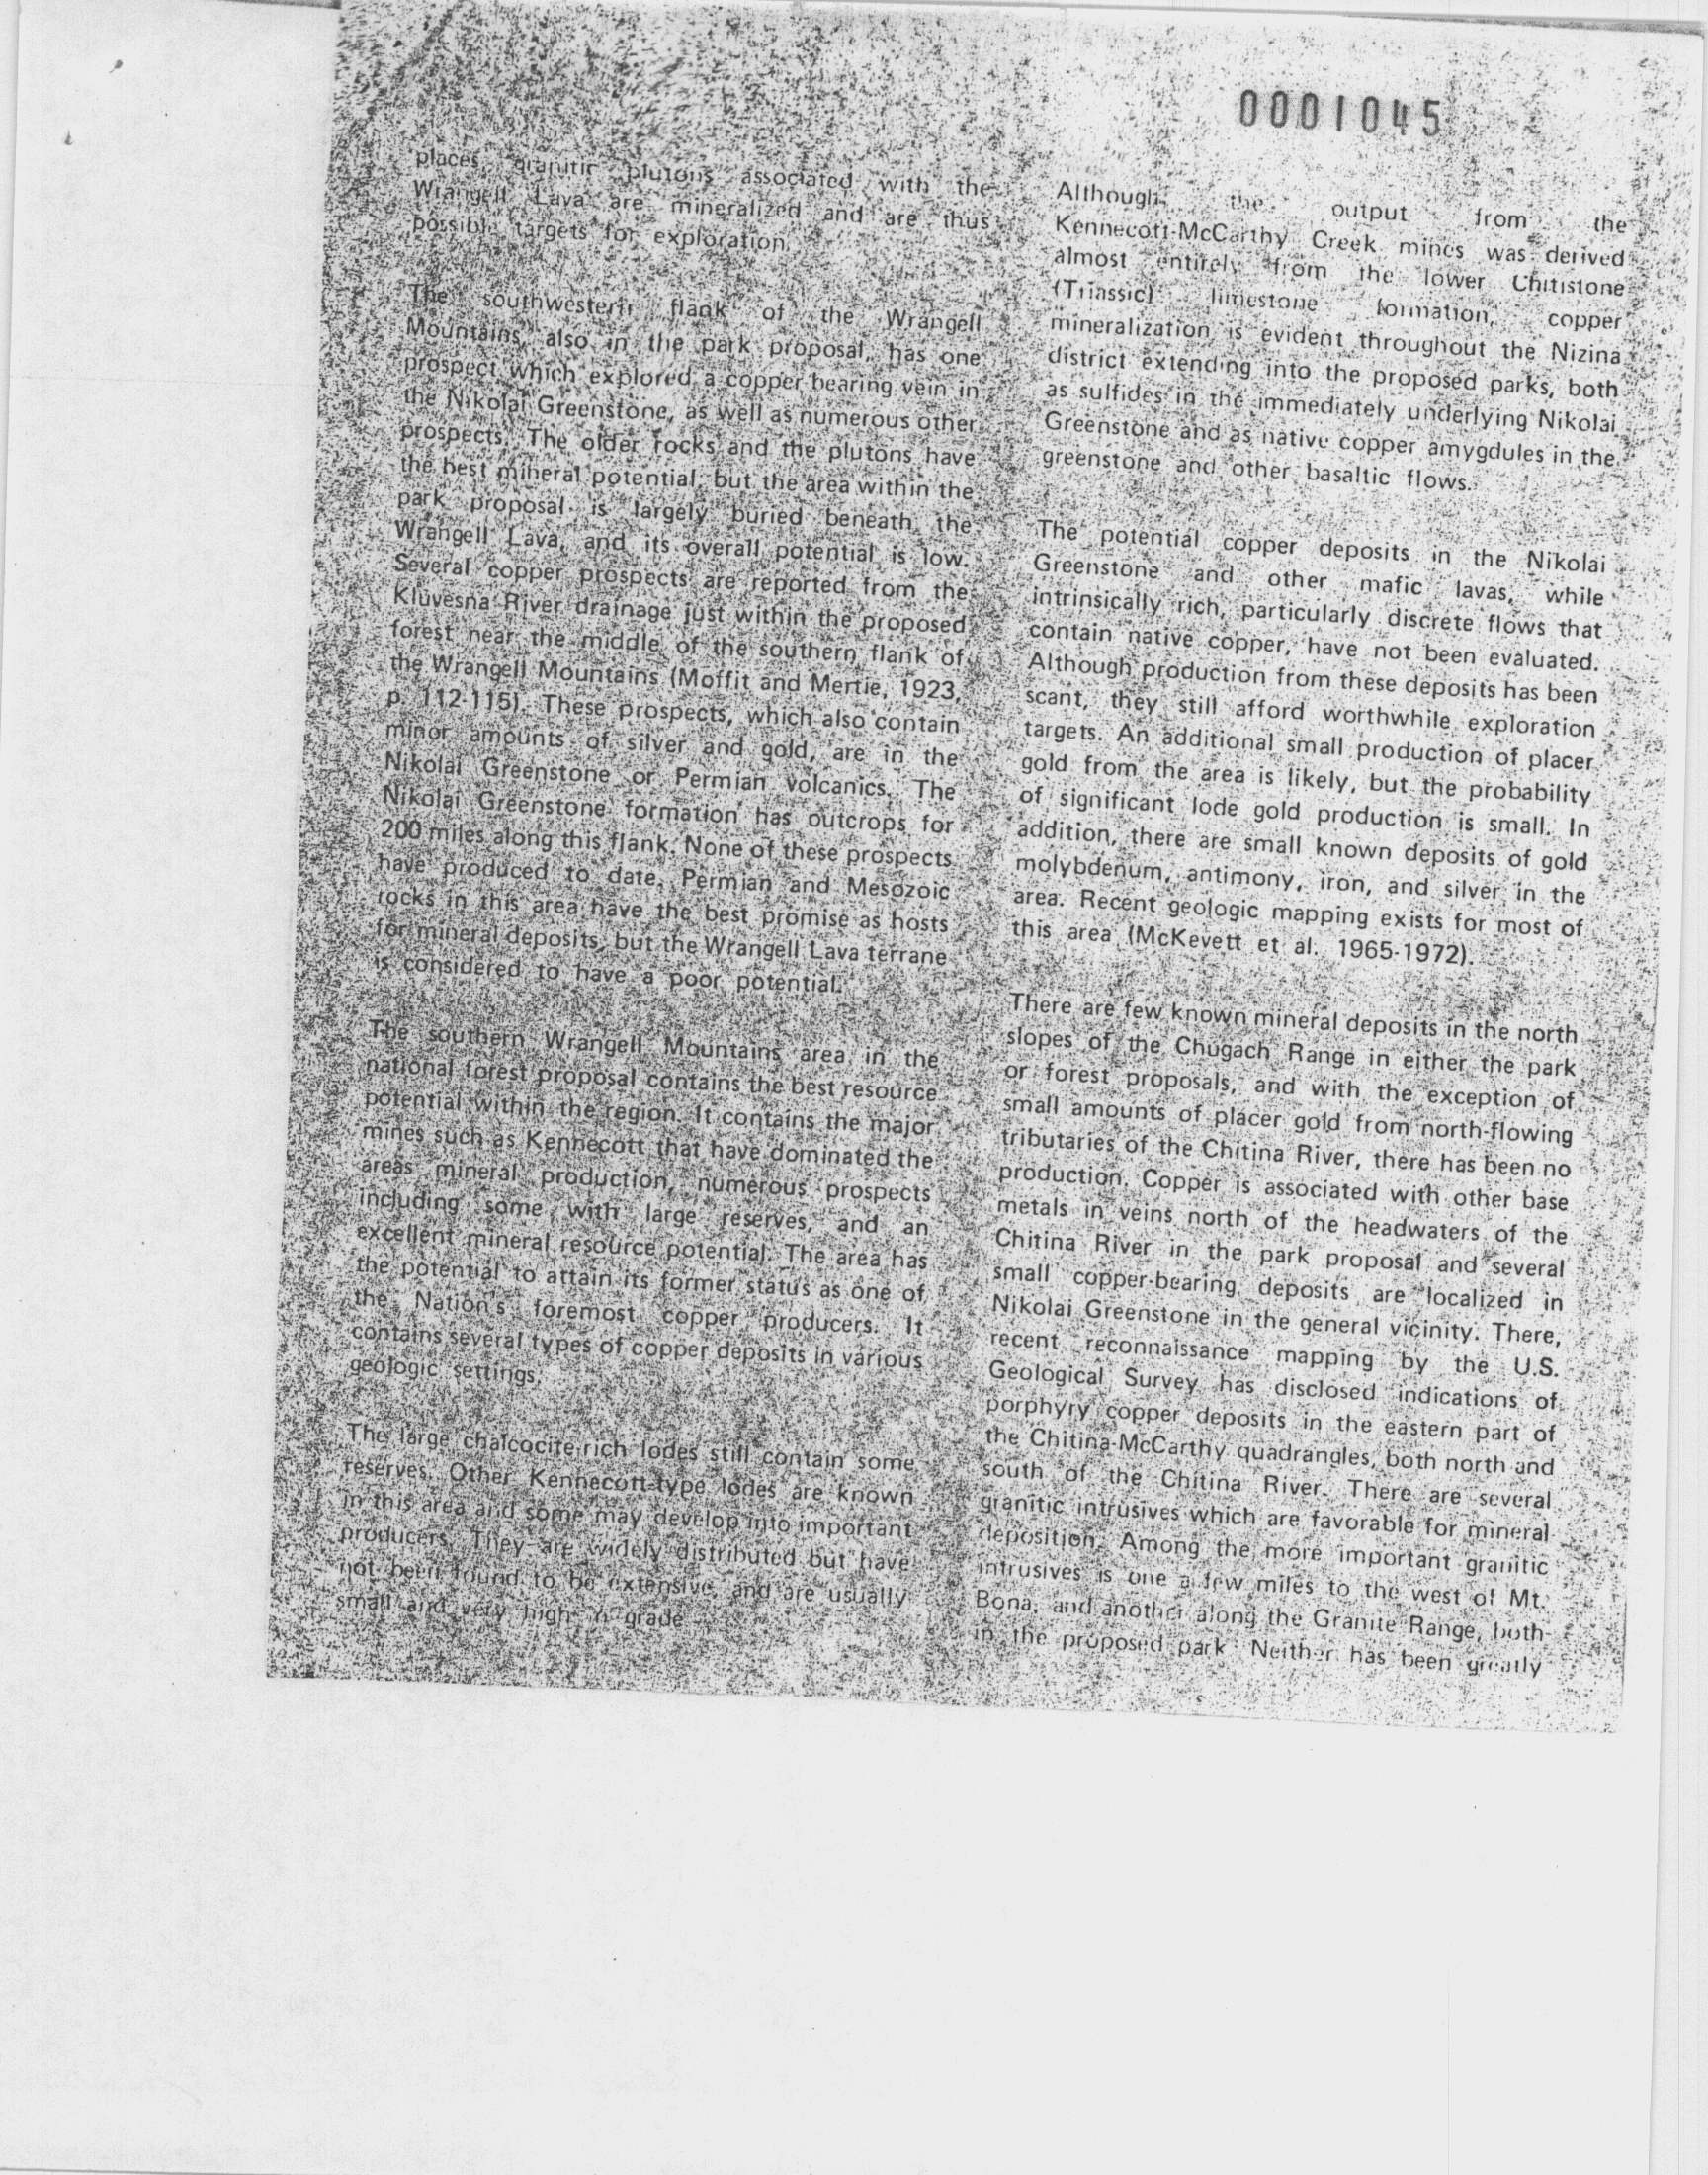 0001045
places granitic plutons associated with the
Wrangell Lava are mineralized and are thus
possible targets for exploration.
The southwestern flank of the Wrangell
Mountains, also in the park proposal, has one
prospect which explored a copper bearing vein in
the Nikolai Greenstone, as well as numerous other
prospects. The older rocks and the plutons have
the best mineral potential, but the area within the
park proposal is largely buried beneath the
Wrangell Lava, and its overall potential is low.
Several copper prospects are reported from the
Kluvesna River drainage just within the proposed
forest near the middle of the southern flank of
the Wrangell Mountains (Moffit and Mertie, 1923,
p. 112-115). These prospects, which also contain
minor amounts of silver and gold, are in the
Nikolai Greenstone or Permian volcanics. The
Nikolai Greenstone formation has outcrops for
200 miles along this flank. None of these prospects
have produced to date. Permian and Mesozoic
rocks in this area have the best promise as hosts
for mineral deposits, but the Wrangell Lava terrane
is considered to have a poor potential.
The southern Wrangell Mountains area in the
national forest proposal contains the best resource
potential within the region. It contains the major
mines such as Kennecott that have dominated the
areas mineral production, numerous prospects
including some with large reserves, and an
excellent mineral resource potential. The area has
the potential to attain its former status as one of
the Nation's foremost copper producers. It
contains several types of copper deposits in various
geologic settings.
The large chalcocite-rich lodes still contain some
reserves. Other Kennecott-type lodes are known
in this area and some may develop into important
producers. They are widely distributed but have
not been found to be extensive, and are usually
small and very high in grade
Although the output from the
Kennecott-McCarthy Creek mines was derived
almost entirely from the lower Chitistone
(Triassic) limestone formation, copper
mineralization is evident throughout the Nizina
district extending into the proposed parks, both
as sulfides in the immediately underlying Nikolai
Greenstone and as native copper amygdules in the
greenstone and other basaltic flows.
The potential copper deposits in the Nikolai
Greenstone and other mafic lavas, while
intrinsically rich, particularly discrete flows that
contain native copper, have not been evaluated.
Although production from these deposits has been
scant, they still afford worthwhile exploration
targets. An additional small production of placer
gold from the area is likely, but the probability
of significant lode gold production is small. In
addition, there are small known deposits of gold
molybdenum, antimony, iron, and silver in the
area. Recent geologic mapping exists for most of
this area (McKevett et al. 1965-1972).
There are few known mineral deposits in the north
slopes of the Chugach Range in either the park
or forest proposals, and with the exception of
small amounts of placer gold from north-flowing
tributaries of the Chitina River, there has been no
production. Copper is associated with other base
metals in veins north of the headwaters of the
Chitina River in the park proposal and several
small copper-bearing deposits are localized in
Nikolai Greenstone in the general vicinity. There,
recent reconnaissance mapping by the U.S.
Geological Survey has disclosed indications of
porphyry copper deposits in the eastern part of
the Chitina-McCarthy quadrangles, both north and
south of the Chitina River. There are several
granitic intrusives which are favorable for mineral
deposition. Among the more important granitic
intrusives is one a few miles to the west of Mt.
Bona, and another along the Granite Range, both
in the proposed park Neither has been greatly